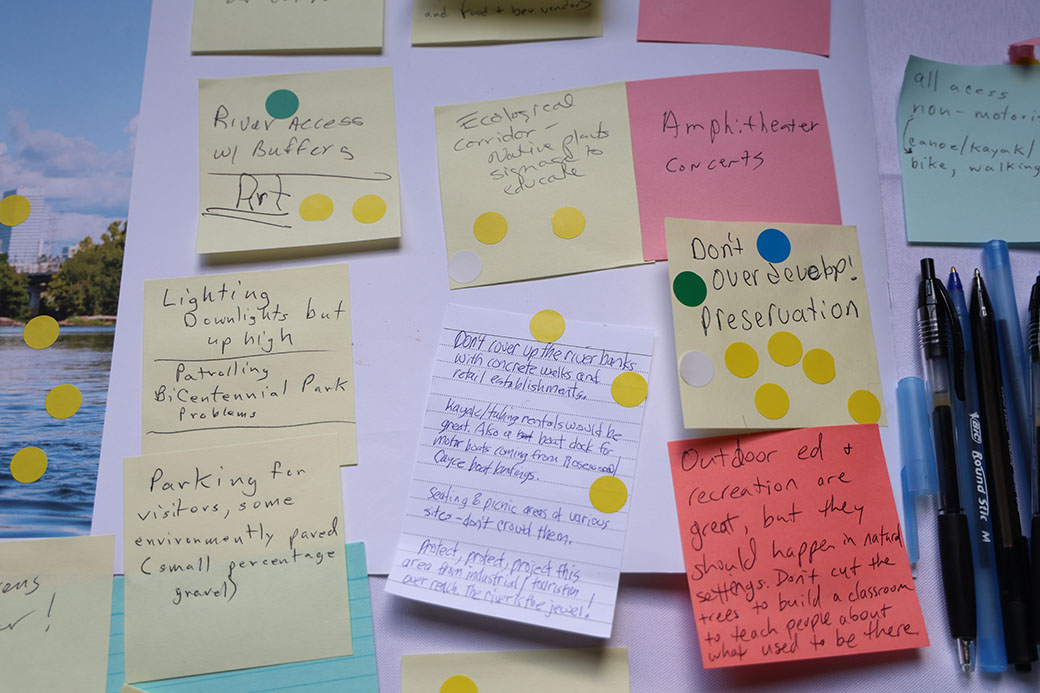 and food + bev vendors
River Access
w/ Buffers
Art
Ecological
corridor -
Native plants
signage to
educate
Amphitheater
concerts
all acess
non-motori
canoe/kayak/
bike, walking
Don't
overdevelop!
Preservation
Lighting
Downlights but
up high
Patrolling
BiCentennial Park
Problems
Don't cover up the river banks
with concrete walks and
retail establishments.
Kayak/tubing rentals would be
great. Also a boat dock for
motor boats coming from Rosewood/
Cayce boat landings.
Seating & picnic areas at various
sites - don't crowd them.
Protect, protect, protect this
area from industrial/tourism
over reach. The river is the jewel!
Parking for
visitors, some
environmently paved
(small percentage
gravel)
Outdoor ed +
recreation are
great, but they
should happen in natural
settings. Don't cut the
trees to build a classroom
to teach people about
what used to be there.
BIC Round Stic M